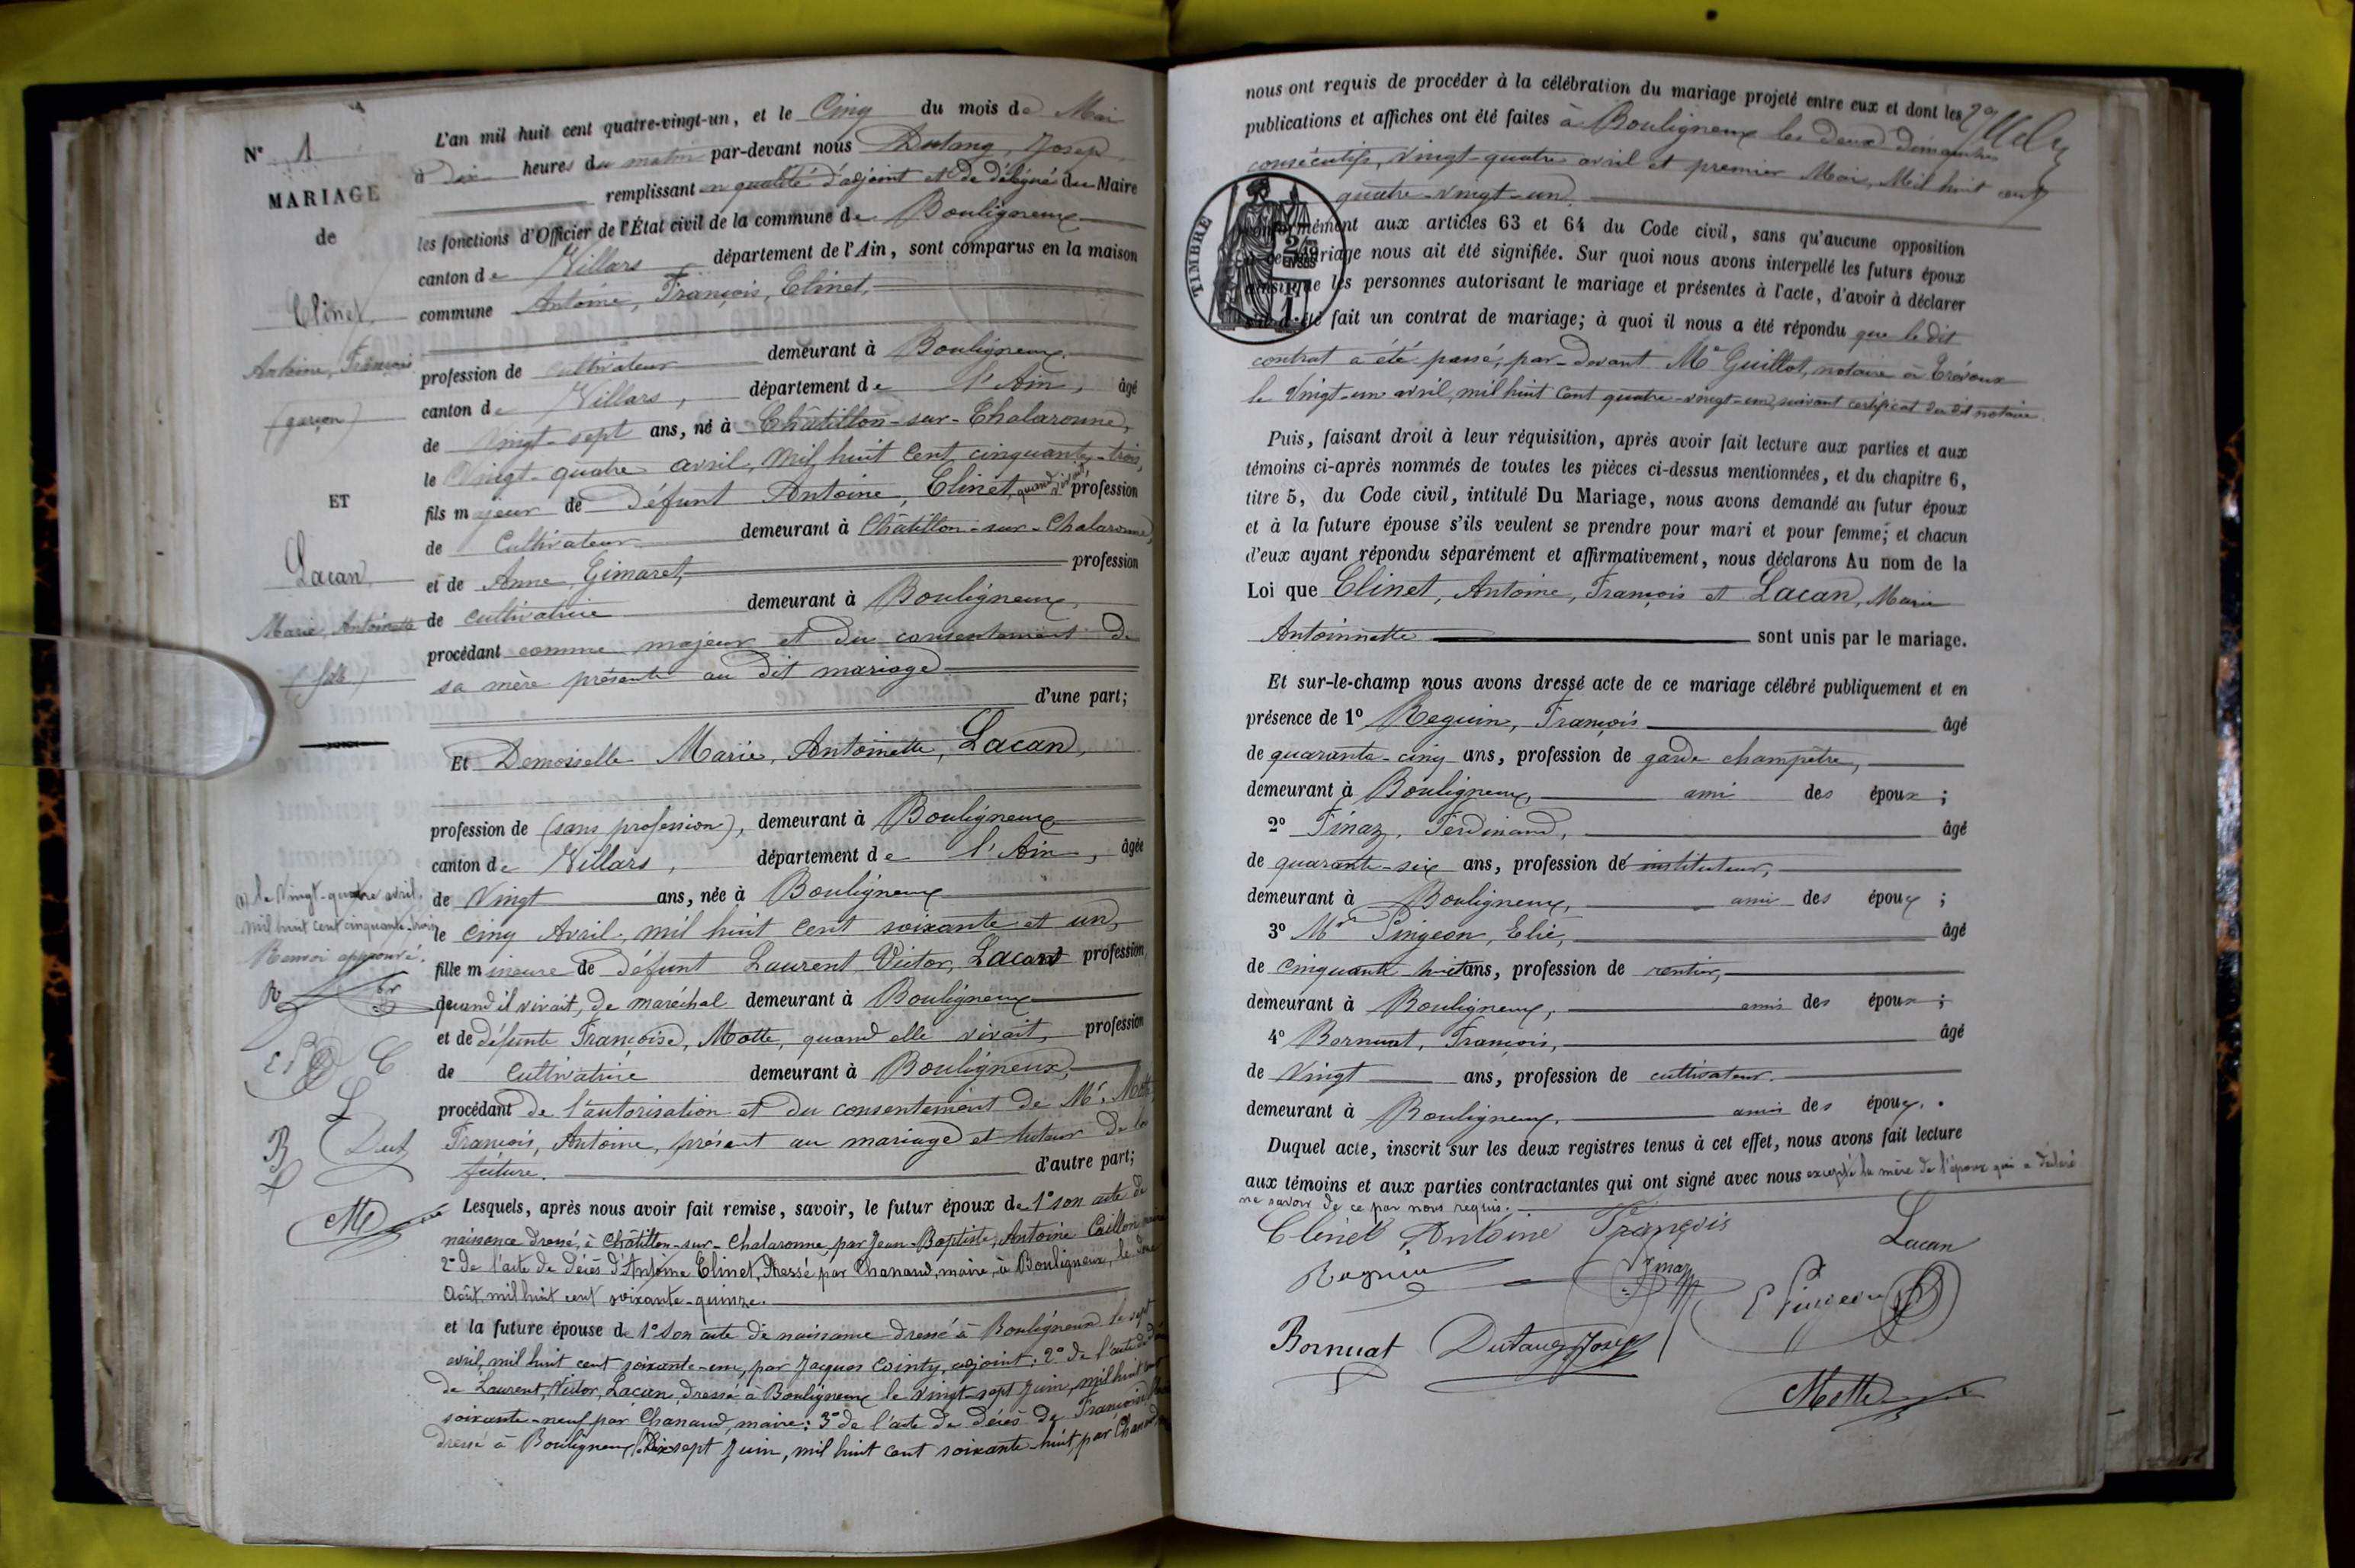 N° 1
MARIAGE
de
Clinet,
Antoine, François
(garçon)
ET
Lacan,
Marie, Antoinette
(fille)
(1) le Vingt-quatre avril,
mil huit cent cinquante-trois
Renvoi approuvé.
L'an mil huit cent quatre-vingt-un, et le Cinq du mois de Mai
à Dix heures du matin par-devant nous Dutang, Joseph
remplissant en qualité d'adjoint et de délégué du Maire
les fonctions d'Officier de l'État civil de la commune de Bouligneux
canton de Villars département de l'Ain, sont comparus en la maison
commune Antoine, François, Clinet,
profession de cultivateur demeurant à Bouligneux,
canton de Villars, département de l'Ain, âgé
de Vingt-sept ans, né à Châtillon-sur-Chalaronne,
le Vingt-quatre avril, mil huit cent cinquante-trois,
fils majeur de Défunt Antoine, Clinet, quand il vivait, profession
de Cultivateur demeurant à Châtillon-sur-Chalaronne,
et de Anne, Gimaret, profession
de cultivatrice demeurant à Bouligneux,
procédant comme majeur et du consentement de
sa mère présente au dit mariage
d'une part;
Et Demoiselle Marie, Antoinette, Lacan,
profession de (sans profession), demeurant à Bouligneux
canton de Villars, département de l'Ain, âgée
de Vingt ans, née à Bouligneux
le cinq Avril, mil huit cent soixante et un,
fille mineure de défunt Laurent, Victor, Lacan profession
quand il vivait, de maréchal demeurant à Bouligneux
et de défunte Françoise, Motte, quand elle vivait, profession
de Cultivatrice demeurant à Bouligneux,
procédant de l'autorisation et du consentement de Mr. Motte
François, Antoine, présent au mariage et tuteur de la
future. d'autre part;
Lesquels, après nous avoir fait remise, savoir, le futur époux de 1° son acte de
naissance dressé, à Châtillon-sur-Chalaronne, par Jean-Baptiste, Antoine Caillon
2° de l'acte de décès d'Antoine Clinet, dressé par Chanaud, maire, à Bouligneux, le
Août, mil huit cent soixante-quinze.
et la future épouse de 1° Son acte de naissance dressé à Bouligneux le sept
avril, mil huit cent soixante-un, par Jacques Cointy, adjoint; 2° de l'acte de
de Laurent, Victor, Lacan, dressé à Bouligneux le vingt-sept Juin, mil huit cent
soixante-neuf par Chanaud, maire; 3° de l'acte de décès de Françoise
dressé à Bouligneux le Dix sept Juin, mil huit cent soixante-huit, par Chanaud
nous ont requis de procéder à la célébration du mariage projeté entre eux et dont les
publications et affiches ont été faites à Bouligneux les deux dimanches
consécutifs, vingt-quatre avril et premier Mai, Mil huit cent
quatre-vingt-un.
conformément aux articles 63 et 64 du Code civil, sans qu'aucune opposition
à ce mariage nous ait été signifiée. Sur quoi nous avons interpellé les futurs époux
ainsi que les personnes autorisant le mariage et présentes à l'acte, d'avoir à déclarer
s'il a été fait un contrat de mariage; à quoi il nous a été répondu que le dit
contrat a été passé, par-devant Me Guillot, notaire à Trévoux
le Vingt-un avril, mil huit Cent quatre-vingt-un, suivant certificat du dit notaire.
TIMBRE
Puis, faisant droit à leur réquisition, après avoir fait lecture aux parties et aux
témoins ci-après nommés de toutes les pièces ci-dessus mentionnées, et du chapitre 6,
titre 5, du Code civil, intitulé Du Mariage, nous avons demandé au futur époux
et à la future épouse s'ils veulent se prendre pour mari et pour femme; et chacun
d'eux ayant répondu séparément et affirmativement, nous déclarons Au nom de la
Loi que Clinet, Antoine, François et Lacan, Marie
Antoinnette sont unis par le mariage.
Et sur-le-champ nous avons dressé acte de ce mariage célébré publiquement et en
présence de 1° Reguin, François âgé
de quarante-cinq ans, profession de garde champêtre,
demeurant à Bouligneux, ami des époux;
2° Finaz, Ferdinand, âgé
de quarante-six ans, profession de instituteur,
demeurant à Bouligneux, ami des époux;
3° Mr Pingeon, Elie, âgé
de cinquante-huit ans, profession de rentier,
demeurant à Bouligneux, amis des époux;
4° Bornuat, François, âgé
de Vingt ans, profession de cultivateur.
demeurant à Bouligneux, amis des époux.
Duquel acte, inscrit sur les deux registres tenus à cet effet, nous avons fait lecture
aux témoins et aux parties contractantes qui ont signé avec nous excepté la mère de l'époux qui a déclaré
ne savoir de ce par nous requis.
Clinet Antoine François
Lacan
Reguin
Finaz
E Pingeon
Bornuat Dutang Joseph
Motte